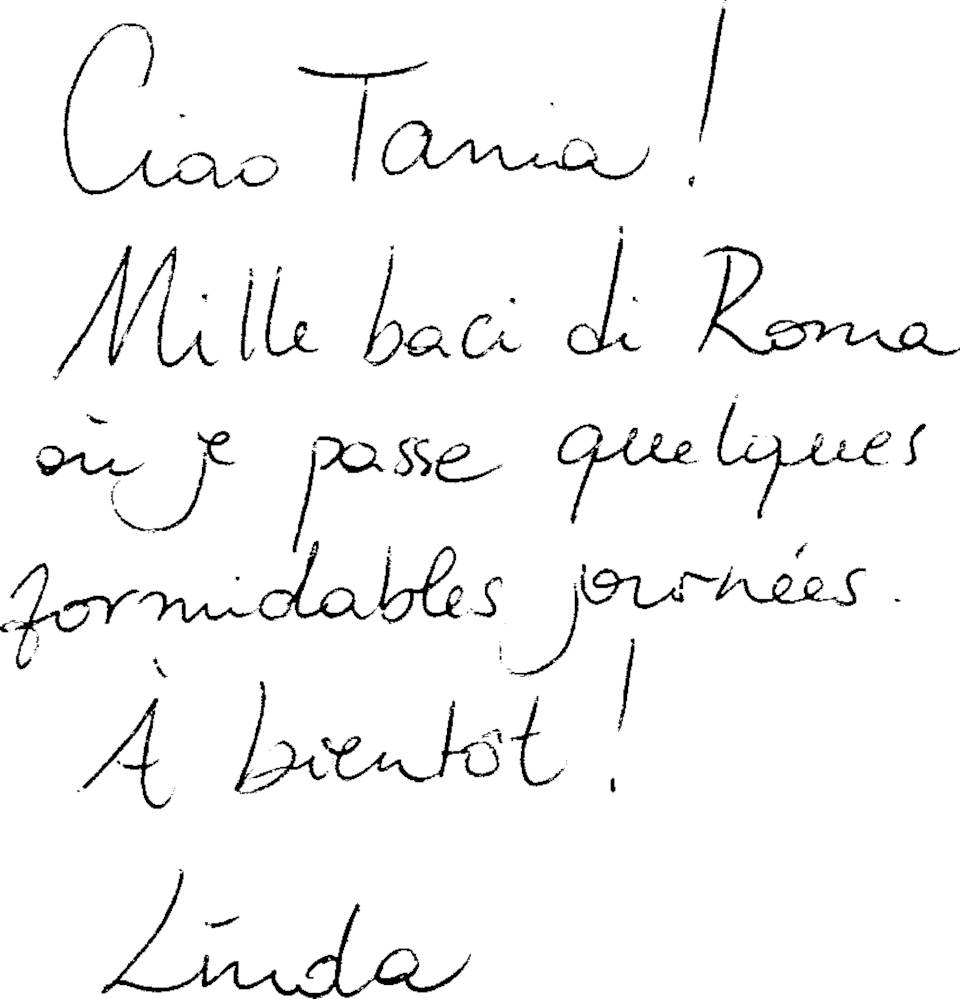 Ciao Tania !
Mille baci di Roma
où je passe quelques
formidables journées.
À bientôt !
Linda